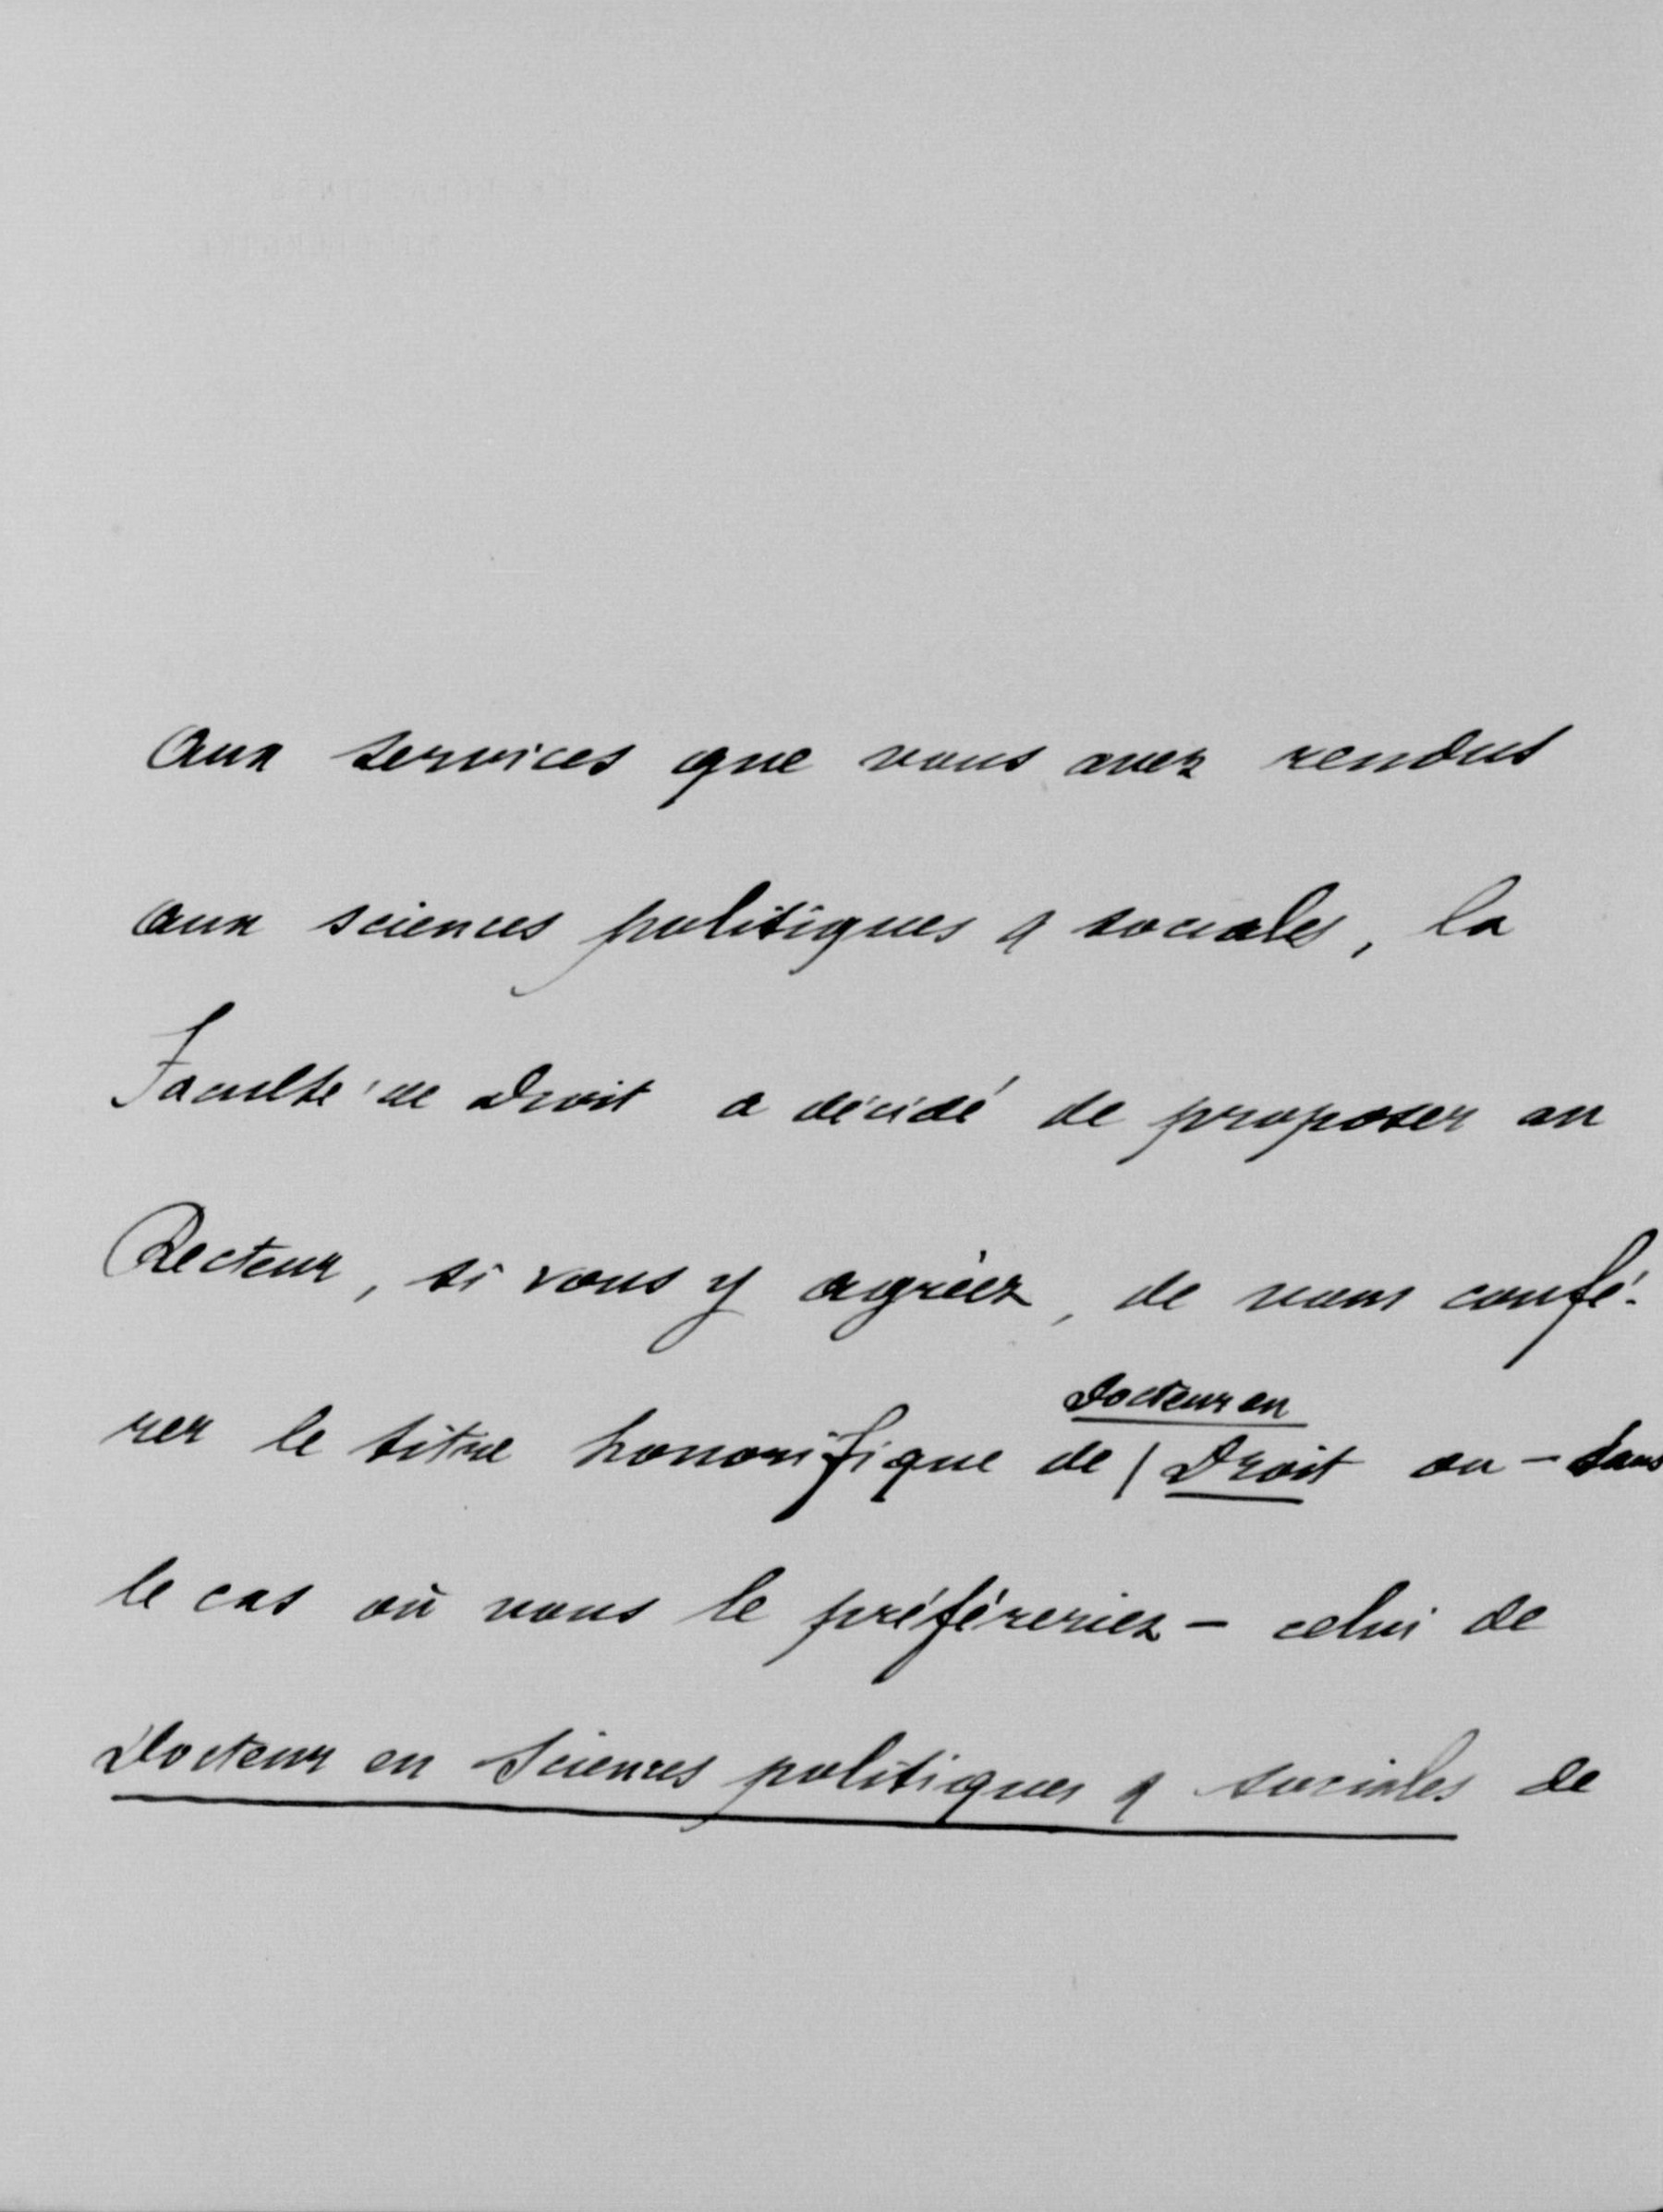 aux services que vous avez rendus
aux sciences politiques & sociales, la
Faculté de Droit a décidé de proposer au
Recteur, si vous y agréez, de vous confé-
rer le titre honorifique de / Docteur en Droit ou - dans
le cas où vous le préféreriez - celui de
Docteur en Sciences politiques & sociales de